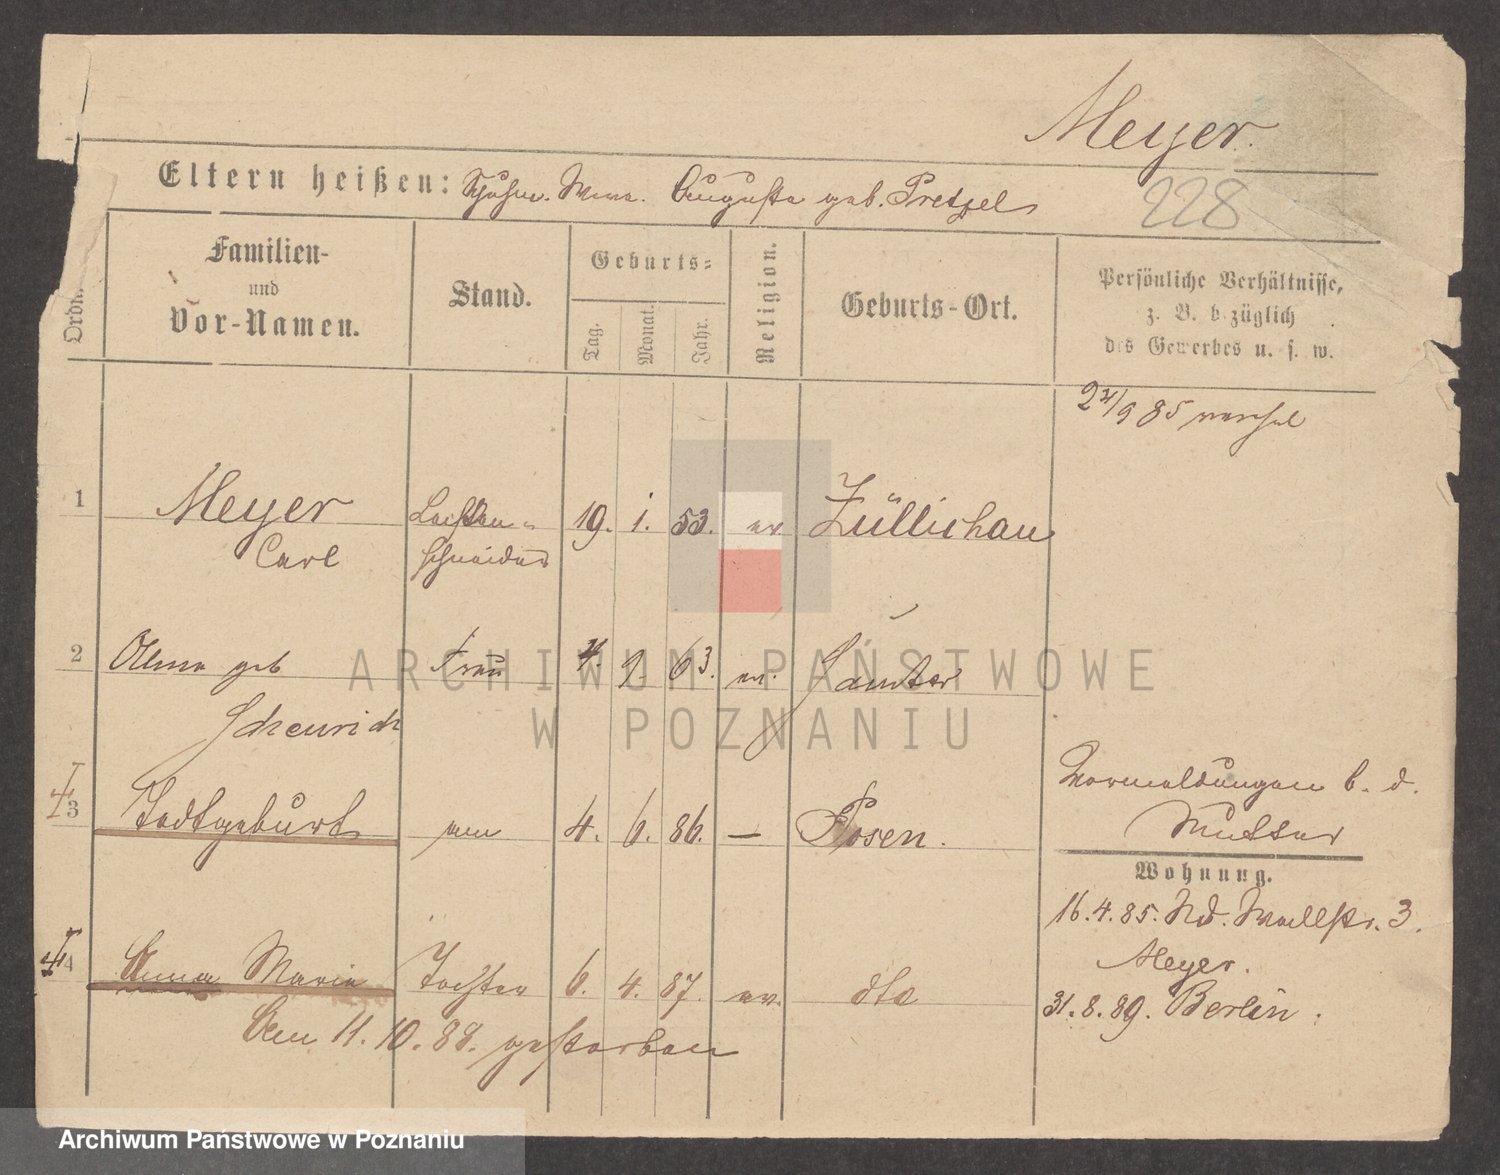 Meyer.
Eltern heißen: Wwe. Auguste geb. Pretzel
228
Ordn.
Familien-
und
Vor-Namen.
Stand.
Geburts-
Tag.
Monat.
Jahr.
Religion.
Geburts-Ort.
Persönliche Verhältnisse,
z. B. bezüglich
des Gewerbes u. s. w.
/9 85
1 Meyer 19. 1. 53. ev. Züllichau
Carl schneider
2 geb Frau 4. 9. 63. ev. Samter
Schenrich
Vermeldungen b. d.
3 Todtgeburt 4. 6. 86. — Posen.
Mutter
Wohnung.
16.4.85. Wallstr. 3.
Meyer.
4 Anna Marie Tochter 6. 4. 87. ev. dto
31.8.89. Berlin.
Am 11. 10. 88. gestorben
ARCHIWUM PAŃSTWOWE
W POZNANIU
Archiwum Państwowe w Poznaniu